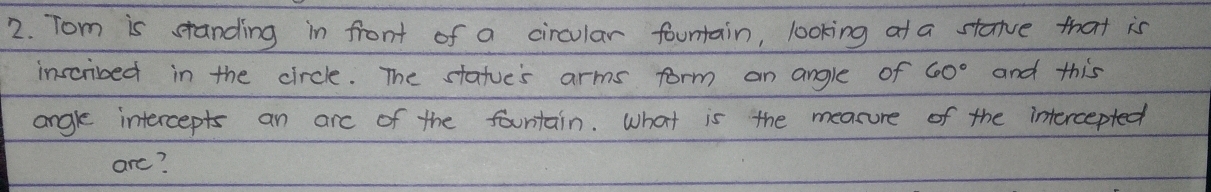 2. Tom is standing in front of a circular fountain, looking at a statue that is
inscribed in the circle. The statue's arms form an angle of 60° and this
angle intercepts an arc of the fountain. What is the measure of the intercepted
arc?